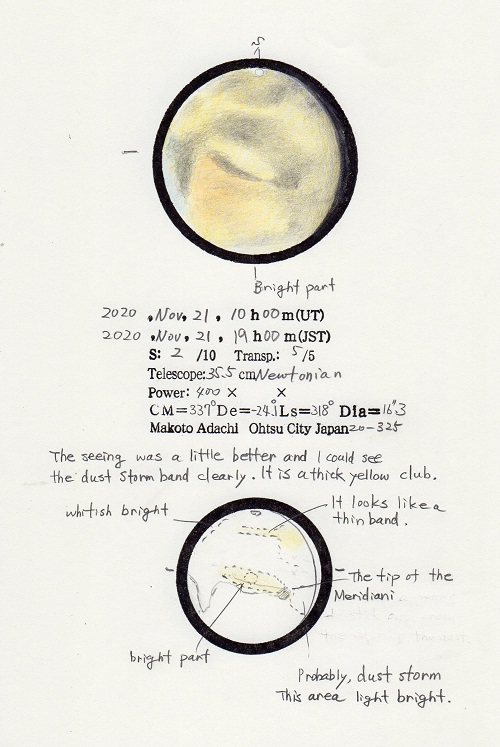 S
Bright part
2020 , Nov, 21, 10 h 00 m(UT)
2020 , Nov, 21, 19 h 00 m(JST)
S: 2 /10 Transp.: 5/5
Telescope: 35.5 cm Newtonian
Power: 400 × ×
CM=337° De=-24.1 Ls=318° Dia=16"3
Makoto Adachi Ohtsu City Japan 20-325
The seeing was a little better and I could see
the dust storm band clearly. It is a thick yellow club.
whitish bright
It looks like a
thin band.
The tip of the
Meridiani
bright part
Probably, dust storm
This area light bright.